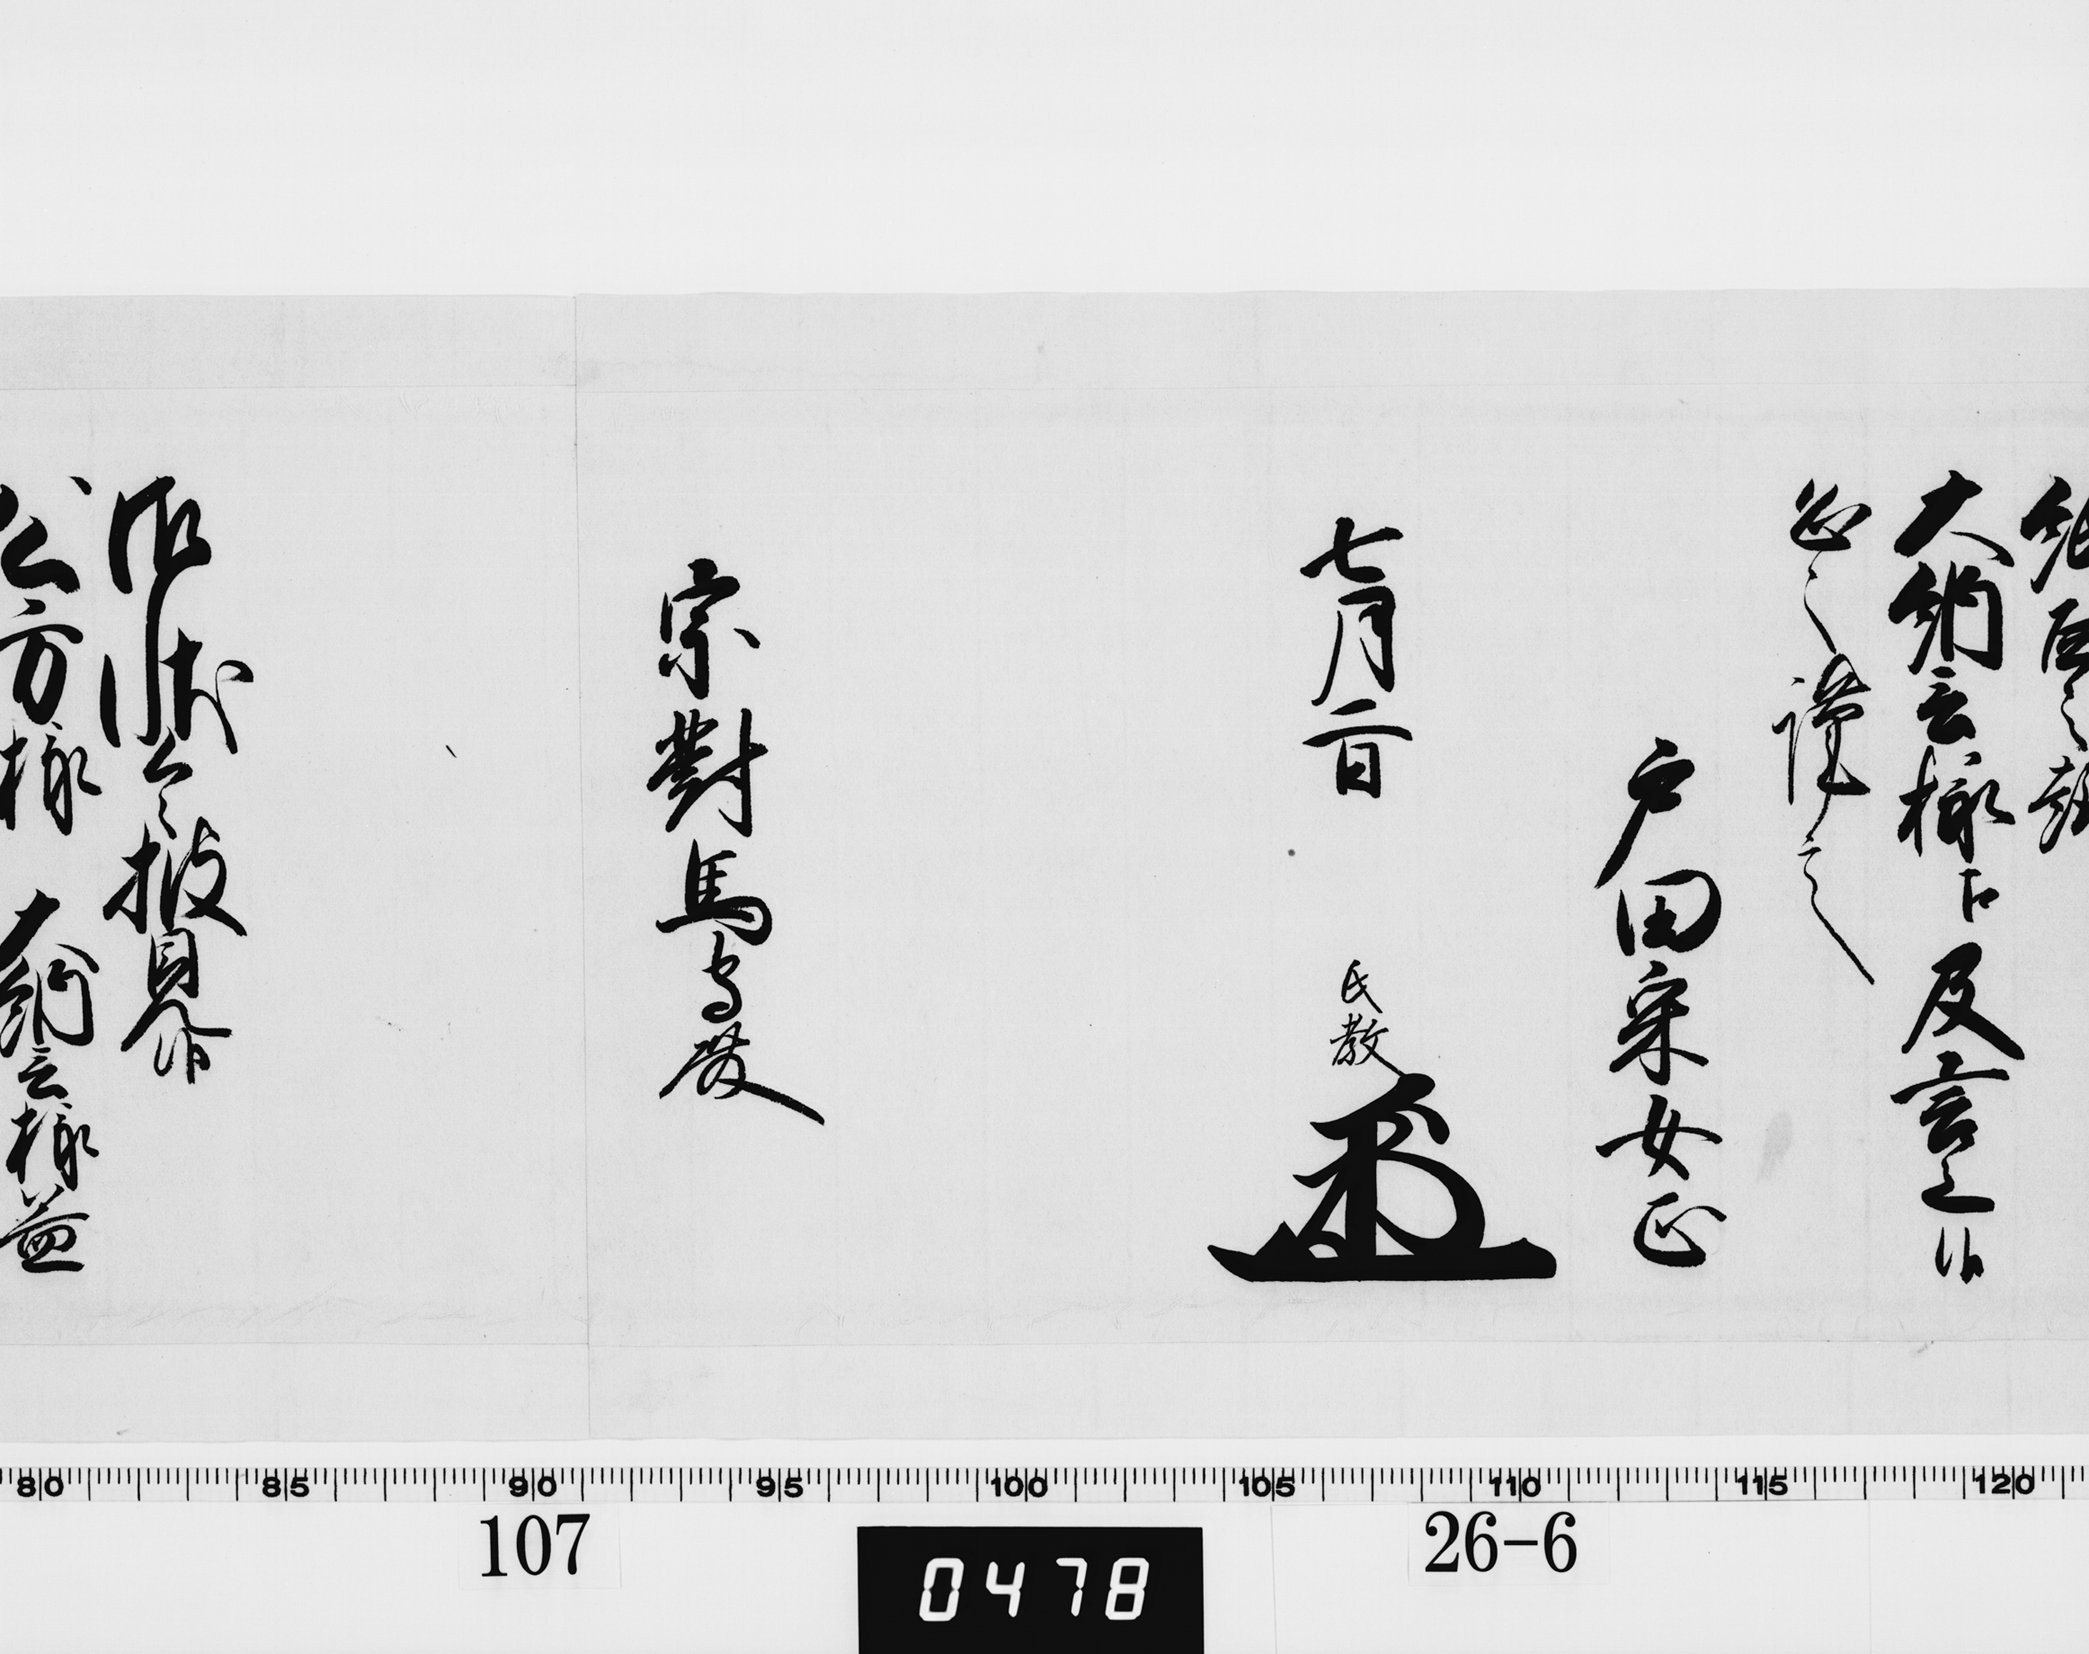 紙面之趣
大納言様江及言上候
恐々謹言
戸田采女正
七月二日
氏教
宗對馬守殿
御状令披見候
公方様 大納言様益
80 85 90 95 100 105 110 115 120
107
26-6
0478